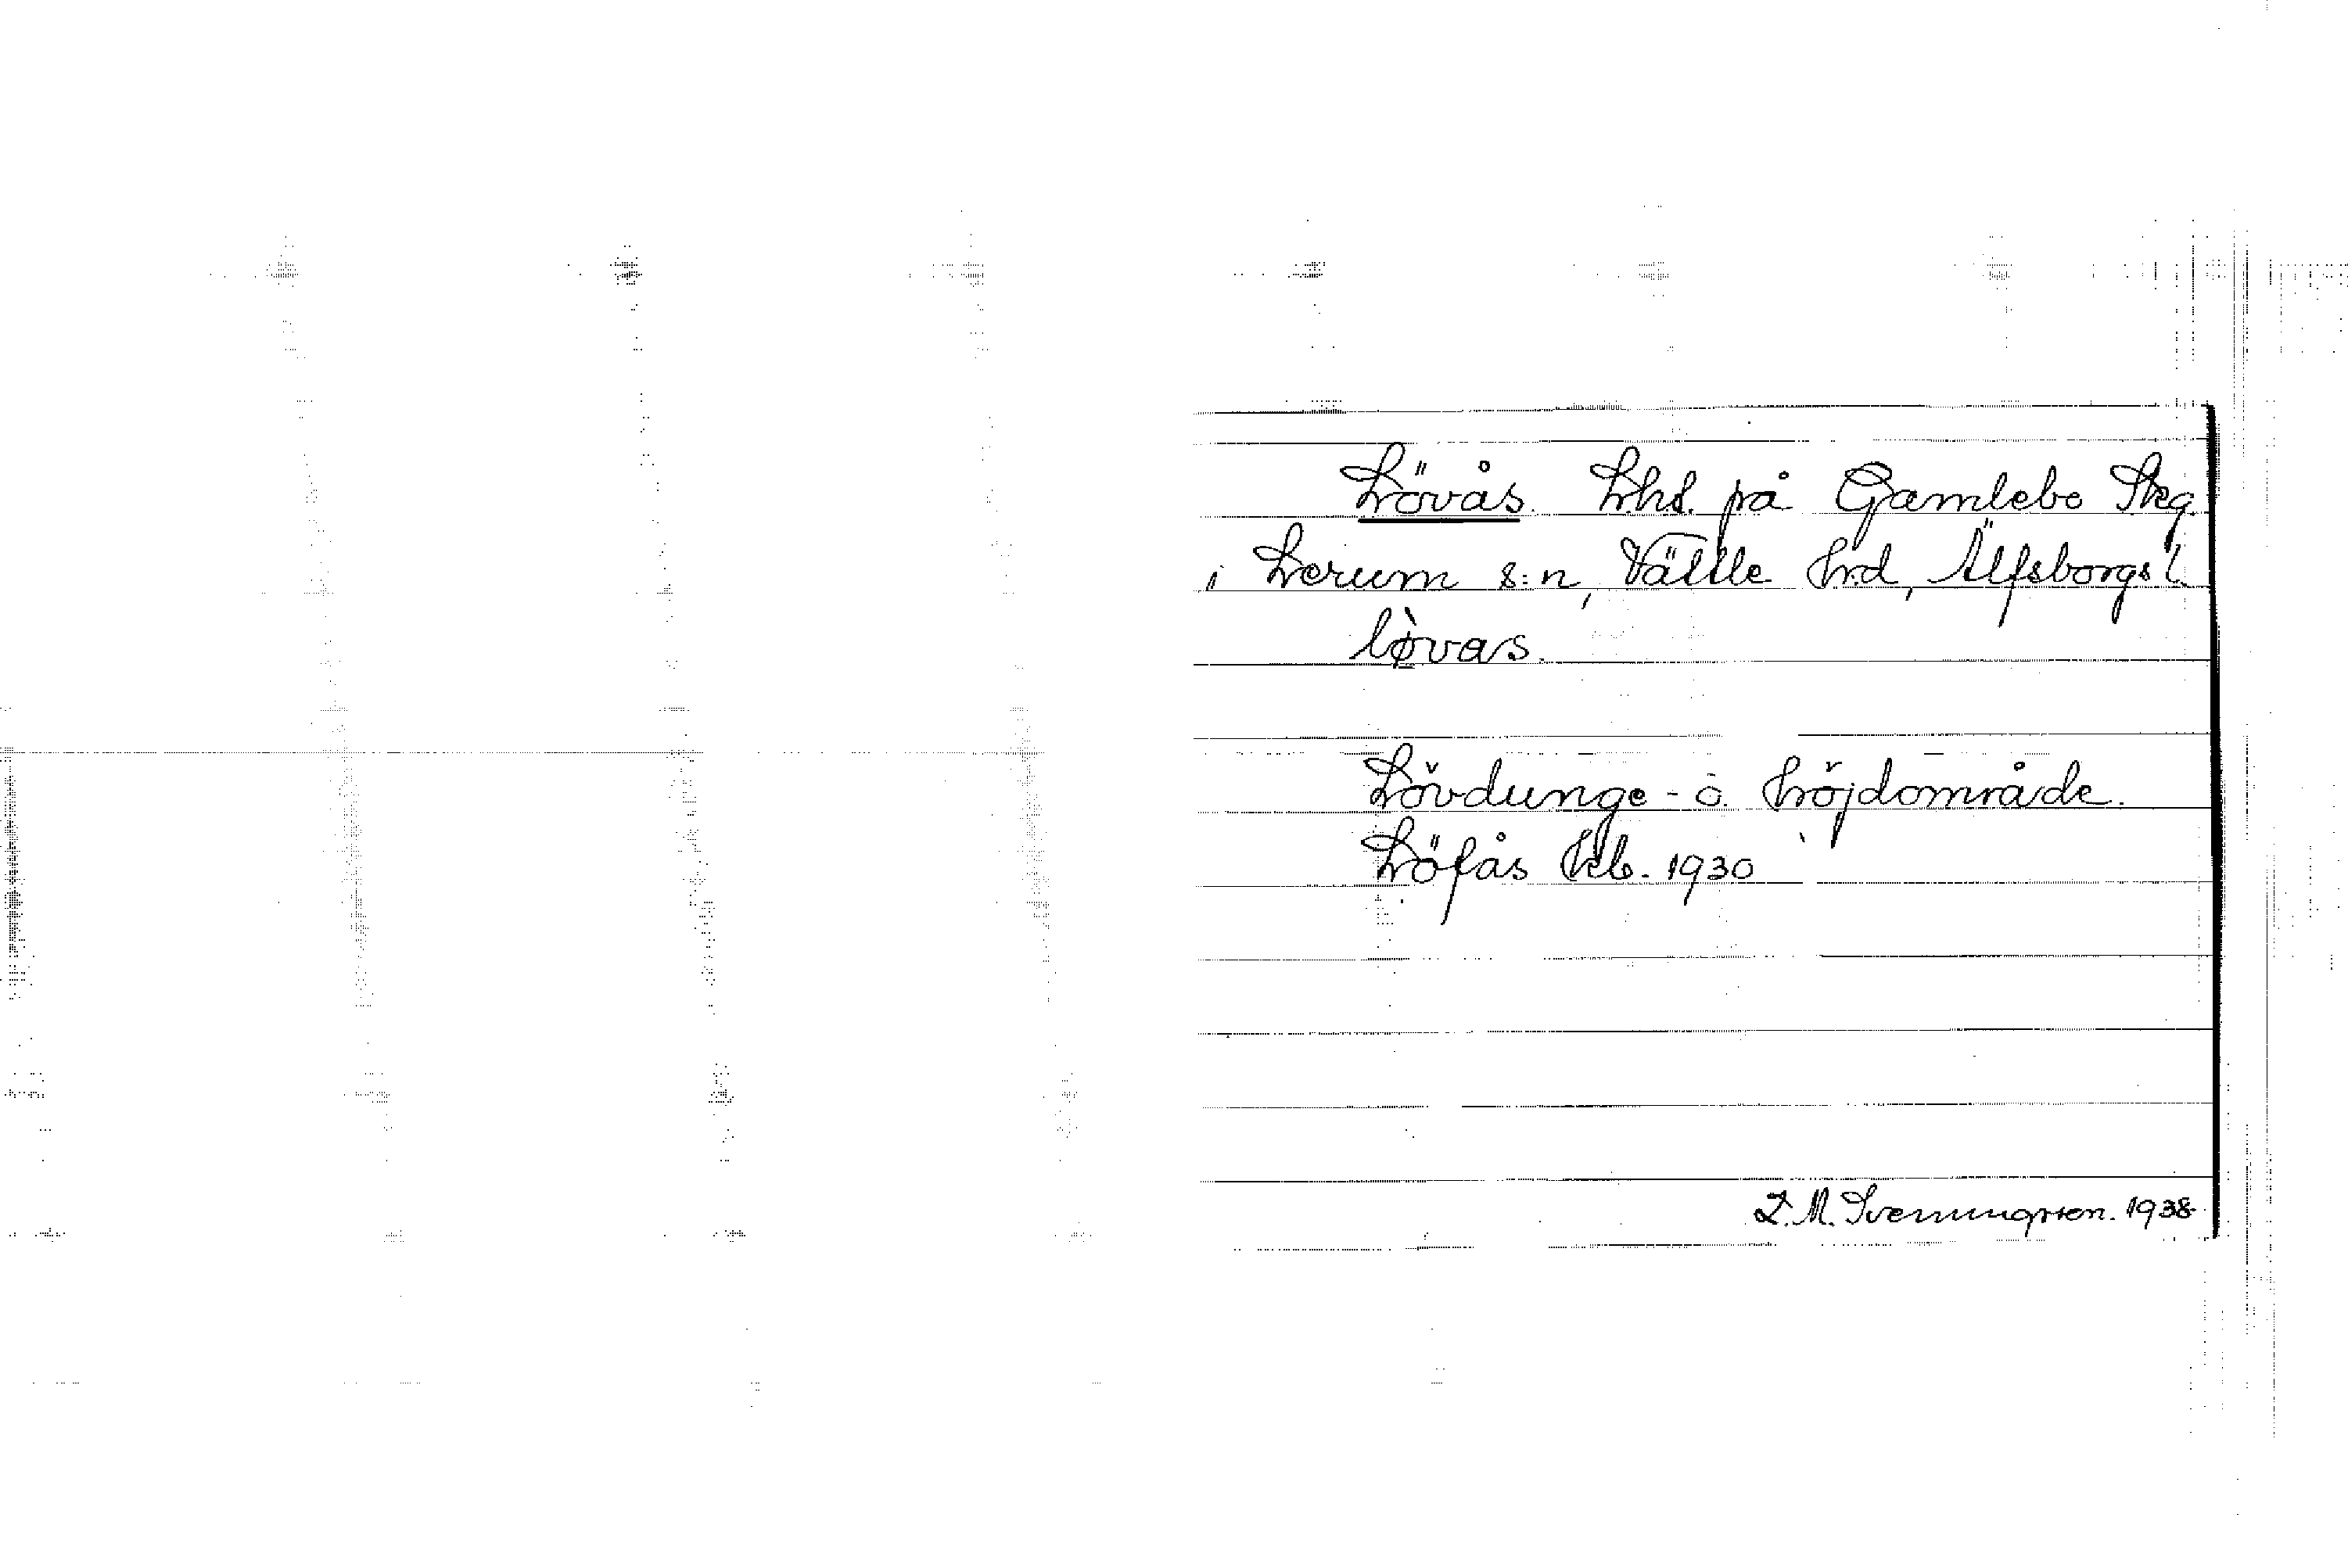 Lövås. Lht. på Gamlebo Skg.
i Lerum s:n, Vättle hrd, Älfsborgs l.
lø̀vas.
Lövdunge- o. höjdområde.
Löfås Kb. 1930
L. M. Svenungsson. 1938